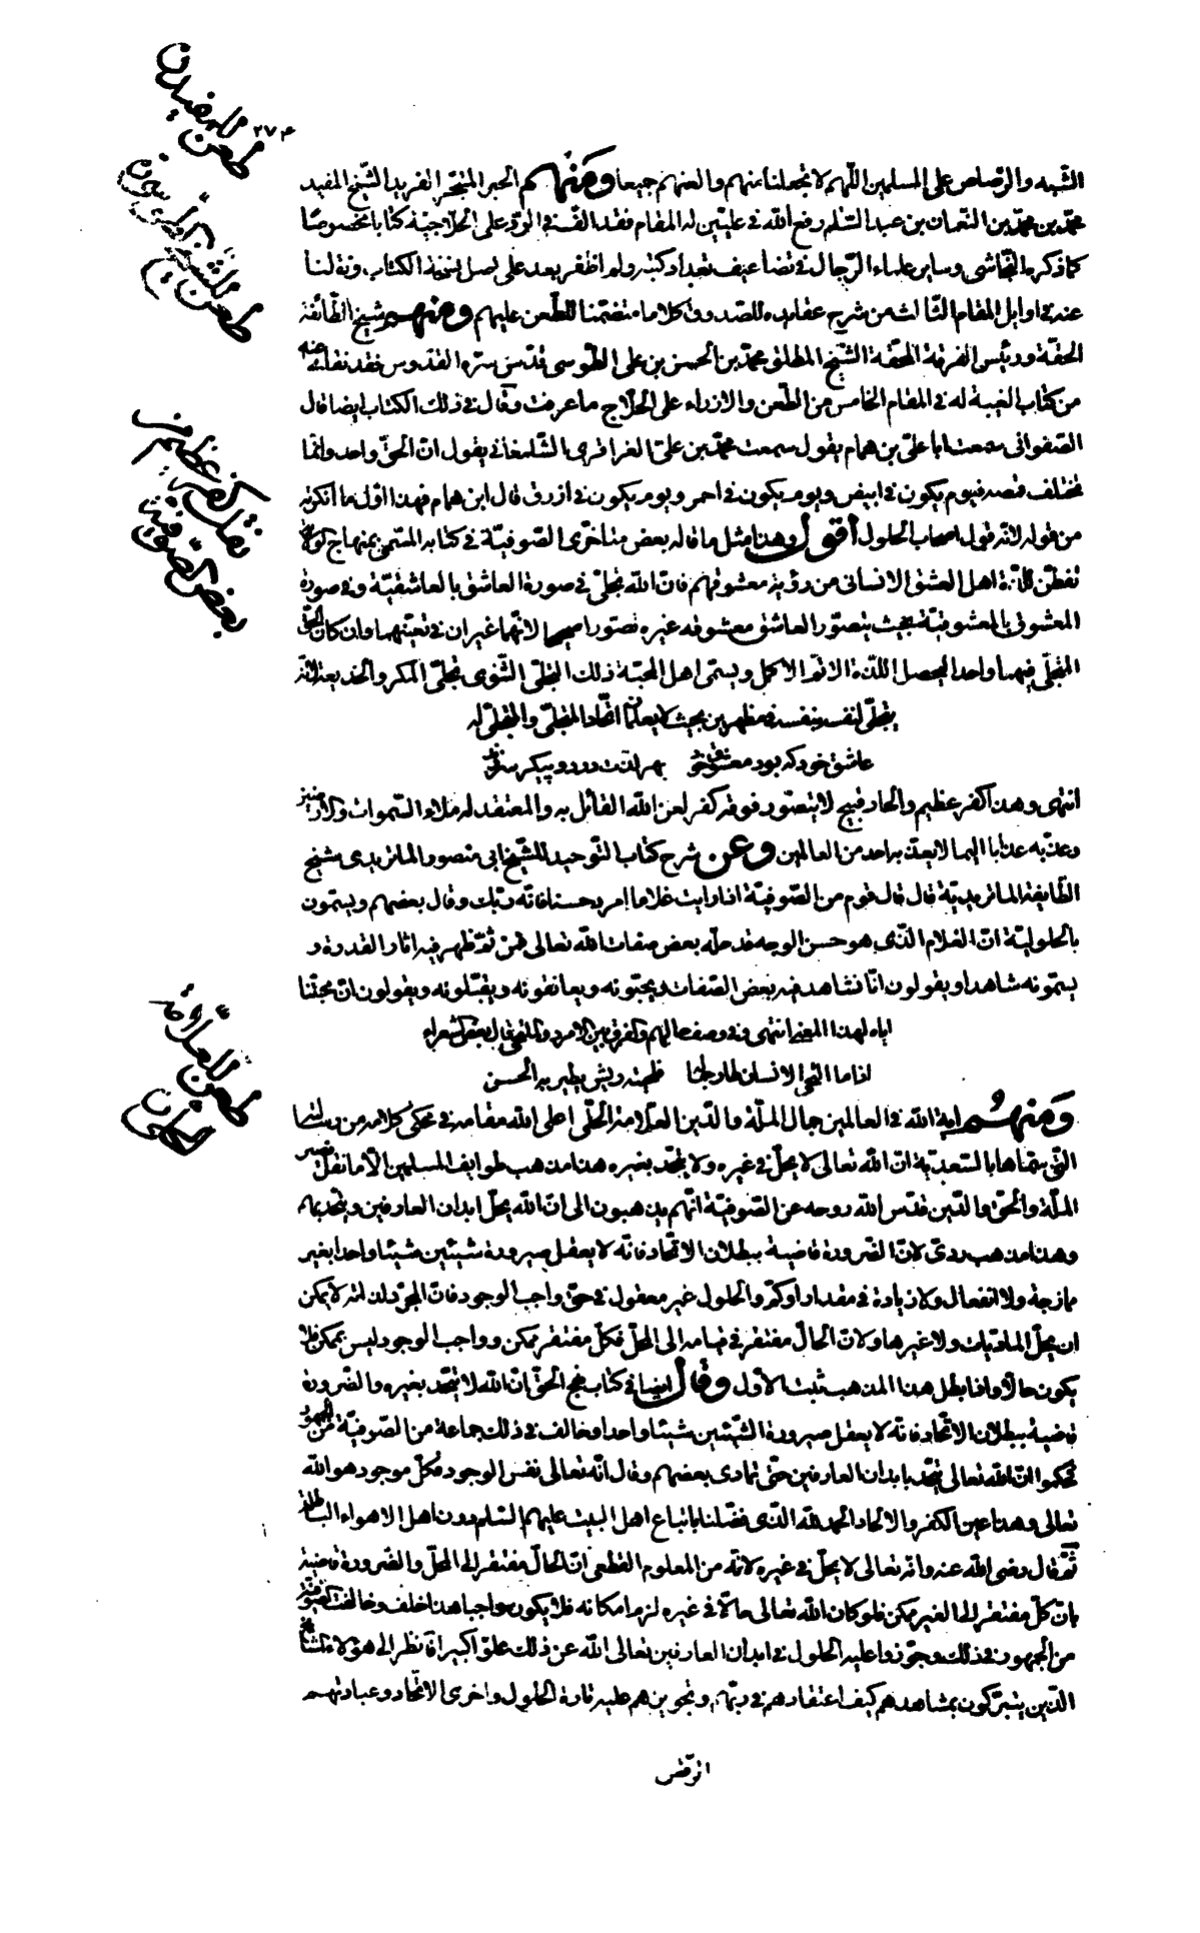 ٢٧٤
طعن المفيد ره
طعن الشيخ
نقل كفر عظيم من بعض الصوفية
طعن العلامة الحلي
الشبه والرصاص على المسلمين اللهم لا تجعلنا منهم والعنهم جميعا ومنهم الحبر المتبحر الفريد الشيخ المفيد
محمد بن محمد بن النعمان بن عبد السلم رفع الله في عليين له المقام فقد الف في الرد على الحلاجية كتابا مخصوصا
كما ذكره النجاشي وساير علماء الرجال في تضاعيف تعداد كتبه ولم اظفر بعد على اصل نسخة الكتاب ونقلنا
عنه في اوايل المقام الثالث من شرح عقايده للصدوق كلاما متضمنا للطعن عليهم ومنهم شيخ الطائفة
الحقة ورئيس الفرقة المحقة الشيخ المطلق محمد بن الحسن بن على الطوسي قدس سره القدوس فقد نقلنا عنه
من كتاب الغيبة له في المقام الخامس من الطعن والازراء على الحلاج ما عرفت وقال في ذلك الكتاب ايضا قال
الصفواني سمعت ابا علي بن همام يقول سمعت محمد بن علي العزاقري الشلمغاني يقول ان الحق واحد وانما
تختلف قمصه فيوم يكون في ابيض ويوم يكون في احمر ويوم يكون في ازرق قال ابن همام فهذا اول ما انكرته
من قوله لانه قول اصحاب الحلول أقول وهذا مثل ما قاله بعض متاخرى الصوفية في كتابه المسمى بمنهاج
تفطن للذة اهل العشق الانساني من رؤية معشوقهم فان الله تجلى في صورة العاشق بالعاشقية وفي صورة
المعشوق بالمعشوقية بحيث يتصور العاشق معشوقه غيره تصورا صحيحا لانهما غيران في تعينهما وان كان الحق
المتجلي فيهما واحدا ليحصل اللذة الاتم الاكمل ويسمى اهل المحبة ذلك التجلى الثنوى تجلى المكر والخديعة لانه
يتجلى لنفسه بنفسه في مظهرين بحيث لا يعلمان اتحاد المتجلى والمتجلى له
عاشق خود كه بود معشوق خود بهر لذت در دو پيكر
انتهى وهذا كفر عظيم والحاد قبيح لا يتصور فوقه كفر لعن الله القائل به والمعتقد له ملاء السموات والارضين
وعذبه عذابا اليما لا يعذبه احد من العالمين وعن شرح كتاب التوحيد للشيخ ابي منصور الماتريدى شيخ
الطايفة الماتريدية قال قال قوم من الصوفية اذا رايت غلاما امرد حسنا فانه ربك وقال بعضهم ويسمون
بالحلولية ان الغلام الذي هو حسن الوجه قد حله بعض صفات الله تعالى فمن ثم ظهر فيه اثار القدرة و
يسمونه شاهدا ويقولون انا نشاهد فيه بعض الصفات ويحبونه ويعانقونه ويقبلونه ويقولون ان محبتنا
اياه لهذا المعنى انتهى وفي وصف حالهم والفرق بين الامرد والملتحى قال بعض الشعراء
اذا ما التحى الانسان طار فلحيته ريش يطير به الحسن
ومنهم اية الله في العالمين جمال الملة والدين العلامة الحلي اعلى الله مقامه في محكى كلامه من
التي سماها بالسعدية ان الله تعالى لا يحل في غيره ولا يتحد بغيره هذا مذهب طوايف المسلمين الا ما نقل نصير
الملة والحق والدين قدس الله روحه عن الصوفية انهم يذهبون الى ان الله يحل ابدان العارفين ويتحد بهم
وهذا مذهب ردى لان الضرورة قاضية ببطلان الاتحاد فانه لا يعقل صيرورة شيئين شيئا واحدا بغير
ممازجة ولا انفعال ولا زيادة في مقدار او كم والحلول غير معقول في حق واجب الوجود فان المجرد لذاته لا يمكن
ان يحل الماديات ولا غيرها ولان الحال مفتقر في قيامه الى المحل فكل مفتقر ممكن وواجب الوجود ليس بممكن فلا
يكون حالا واذا بطل هذا المذهب ثبت الاول وقال ايضا في كتاب نهج الحق ان الله لا يتحد بغيره والضرورة
قاضية ببطلان الاتحاد فانه لا يعقل صيرورة الشيئين شيئا واحدا وخالف في ذلك جماعة من الصوفية من الجمهور
فحكموا ان الله تعالى يتحد بابدان العارفين حتى تمادى بعضهم وقال انه تعالى نفس الوجود فكل موجود هو الله
تعالى وهذا عين الكفر والالحاد الحمد لله الذي فضلنا باتباع اهل البيت عليهم السلم دون اهل الاهواء الباطلة
ثم قال رضى الله عنه وانه تعالى لا يحل في غيره لانه من المعلوم القطعى ان الحال مفتقر الى المحل والضرورة قاضية
بان كل مفتقر الى الغير ممكن فلو كان الله تعالى حالا في غيره لزم امكانه فلا يكون واجبا هذا خلف وخالفت الصوفية
من الجمهور في ذلك وجوزوا عليه الحلول في ابدان العارفين تعالى الله عن ذلك علوا كبيرا فانظر الى هؤلاء المشايخ
الذين يتبركون بمشاهدهم كيف اعتقادهم في ربهم وتجويزهم عليه تارة الحلول واخرى الاتحاد وعبادتهم
الرقص